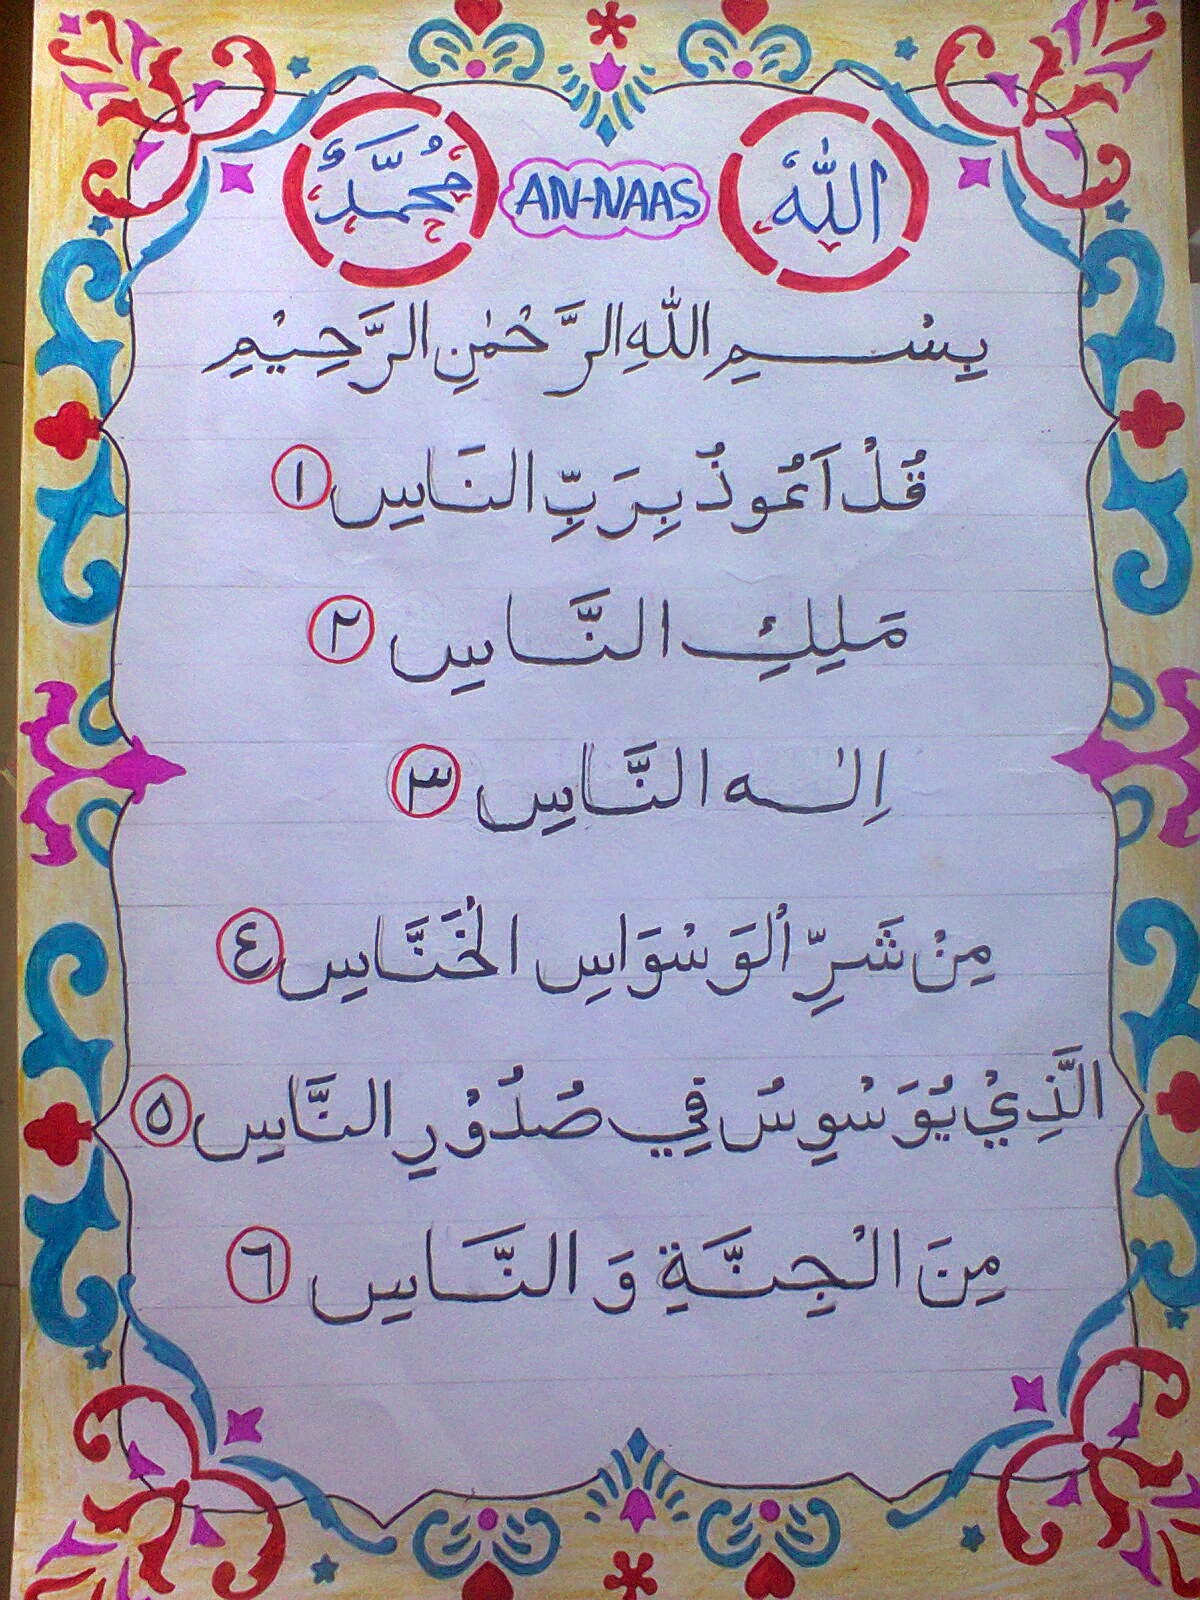 الله AN-NAAS مُحَمَّدٌ
بِسْمِ اللهِ الرَّحْمٰنِ الرَّحِيْمِ
قُلْ اَعُوذُ بِرَبِّ النَاسِ ١
مَلِكِ النَّاسِ ٢
اِلٰه النَّاسِ ٣
مِنْ شَرِّ الْوَسْوَاسِ الْخَنَّاسِ ٤
الَّذِيْ يُوَسْوِسُ فِي صُدُوْرِ النَّاسِ ٥
مِنَ الْجِنَّةِ وَ النَّاسِ ٦